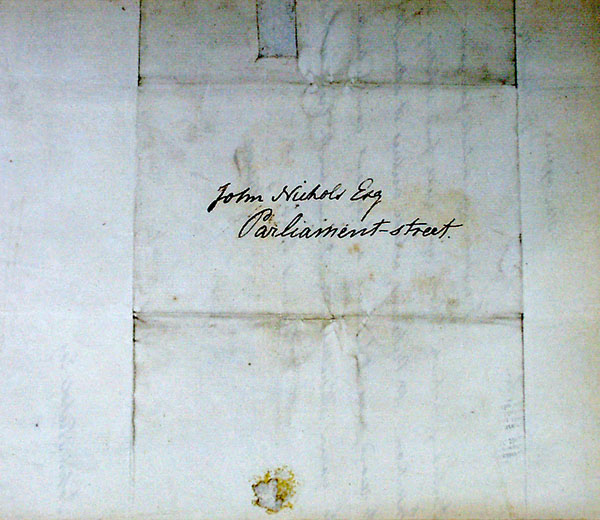 John Nichols Esq
Parliament-street.